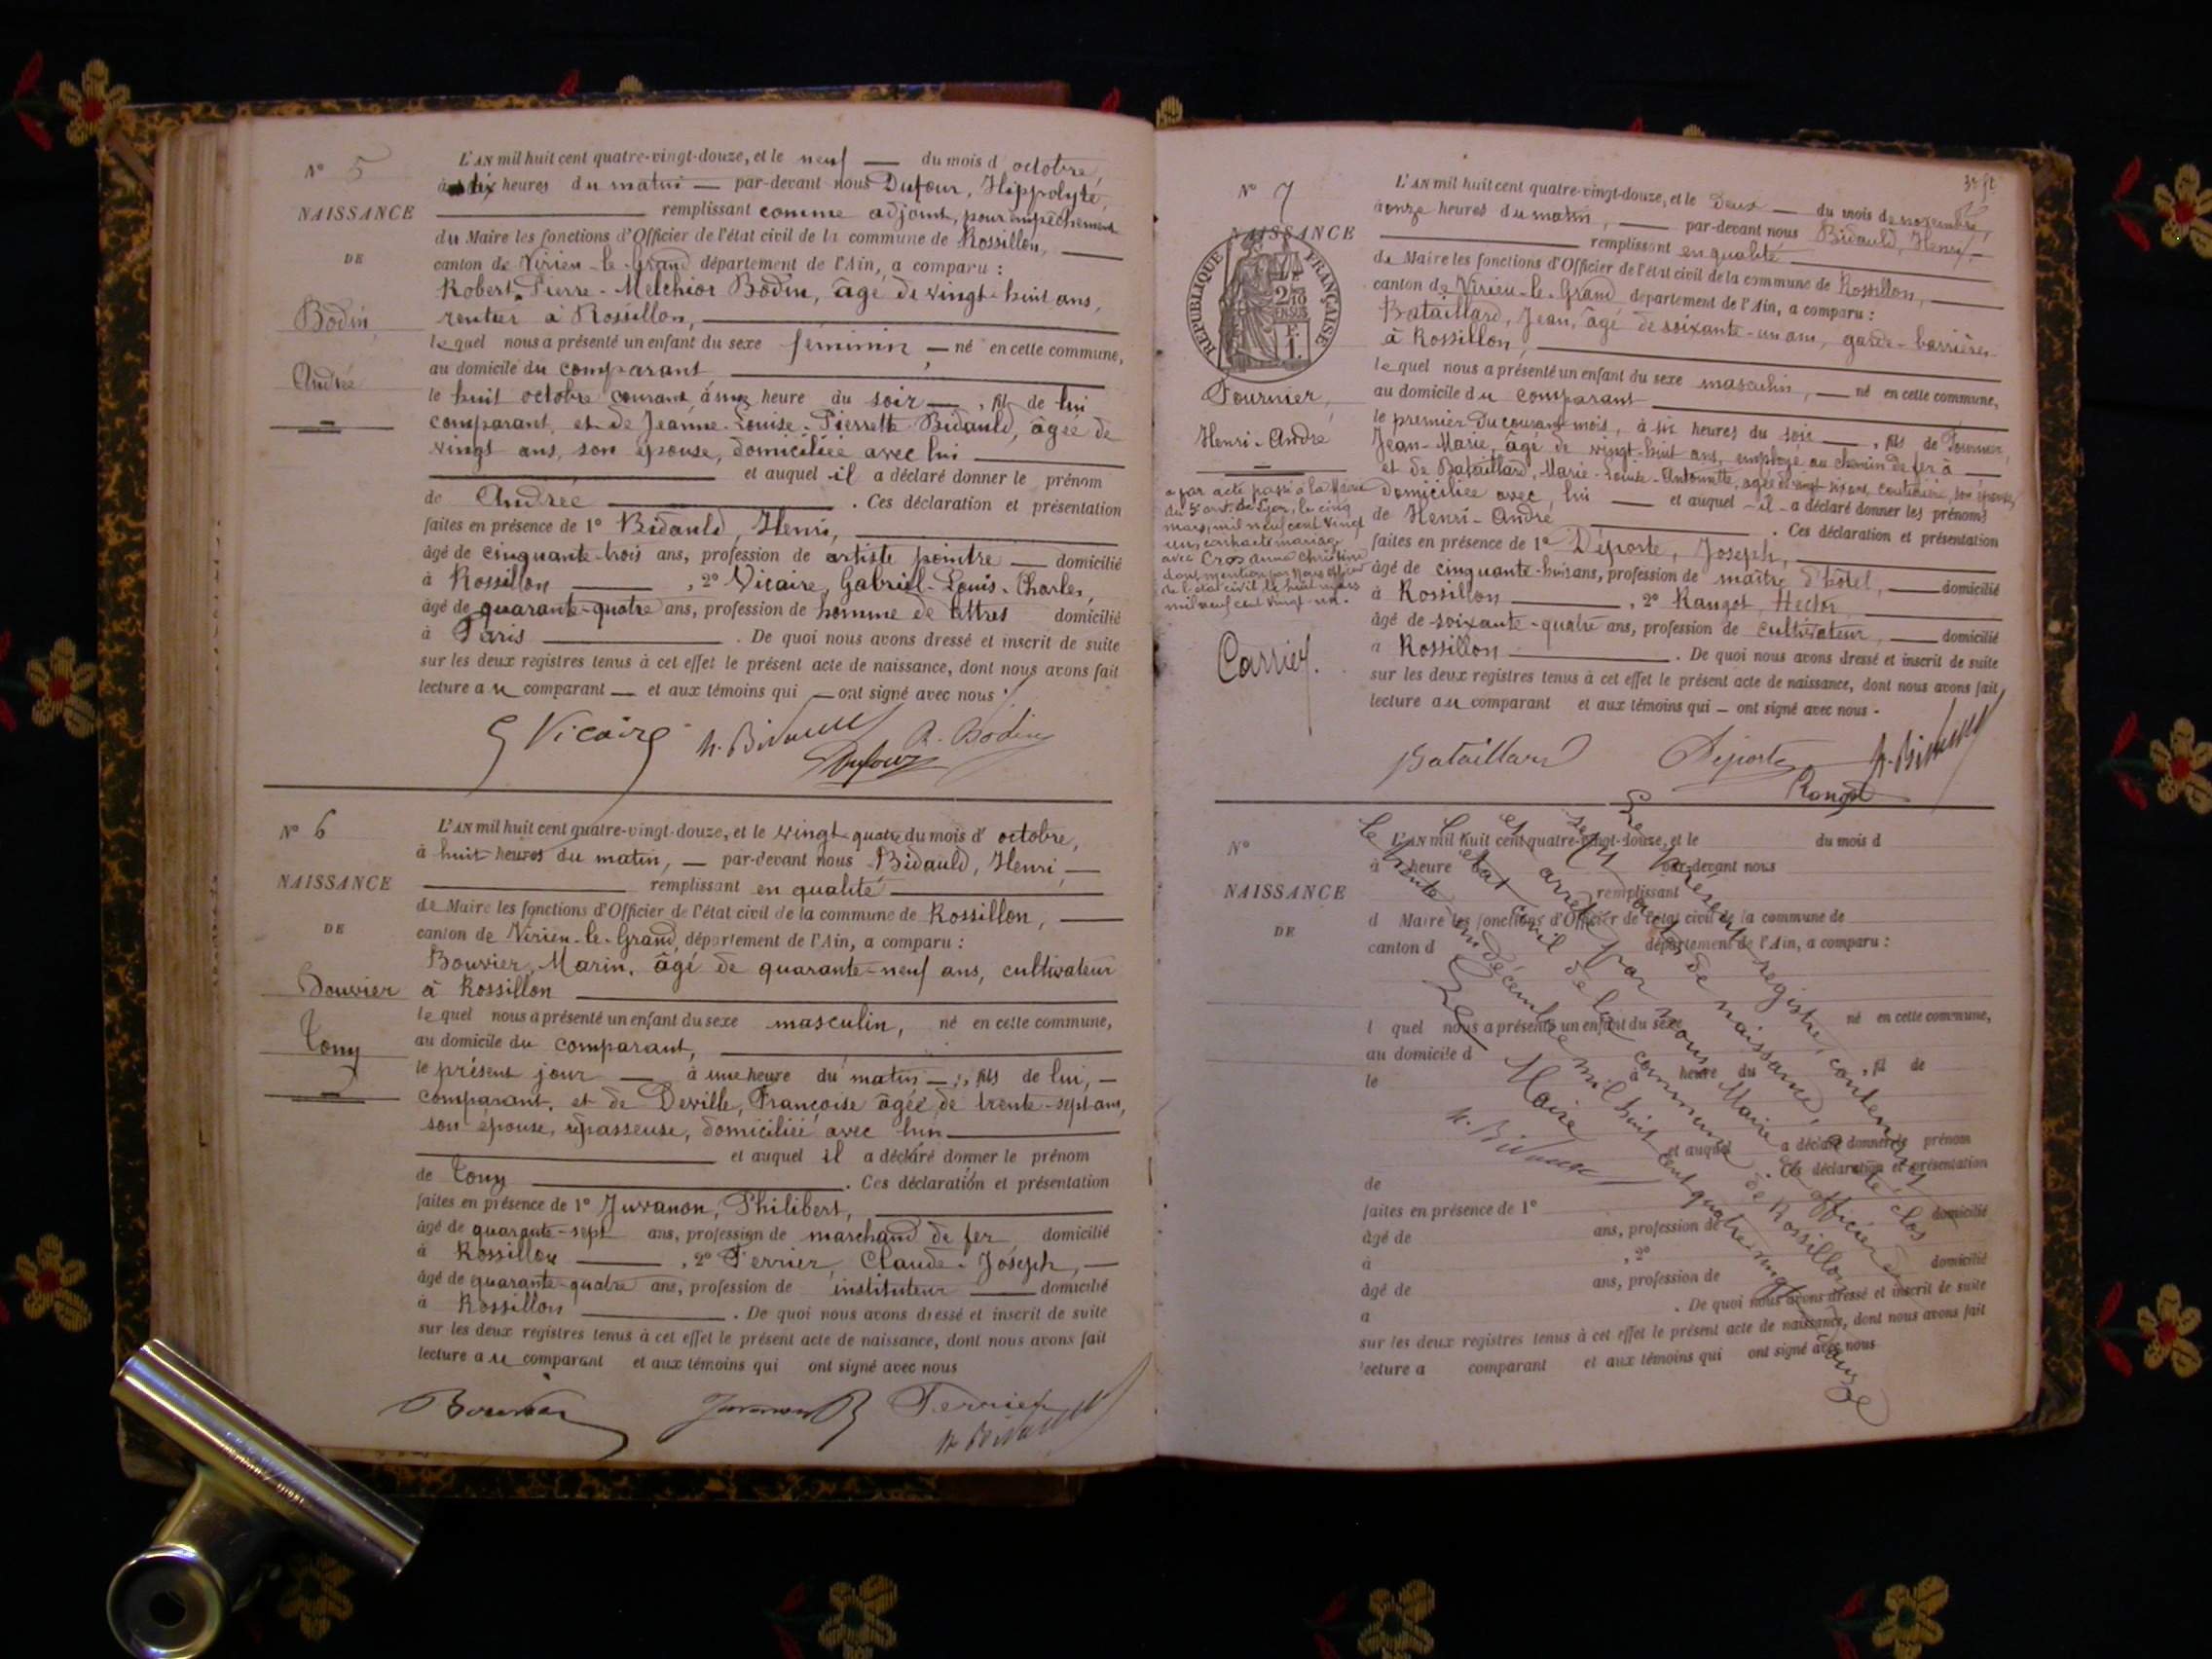 N° 5
NAISSANCE
DE
Bodin
Andrée
L'AN mil huit cent quatre-vingt-douze, et le neuf — du mois d octobre,
à dix heures du matin — par-devant nous Dufour, Hippolyte,
remplissant comme adjoint, pour empêchement
du Maire les fonctions d'Officier de l'état civil de la commune de Rossillon,
canton de Virieu-le-Grand département de l'Ain, a comparu :
Robert, Pierre-Melchior Bodin, âgé de vingt-huit ans,
rentier à Rossillon,
lequel nous a présenté un enfant du sexe féminin, — né en cette commune,
au domicile du comparant
le huit octobre courant, à une heure du soir —, fil de lui
comparant, et de Jeanne-Louise-Pierrette Bidauld, âgée de
vingt ans, son épouse, domiciliée avec lui
et auquel il a déclaré donner le prénom
de Andrée . Ces déclaration et présentation
faites en présence de 1° Bidauld, Henri,
âgé de cinquante-trois ans, profession de artiste peintre — domicilié
à Rossillon , 2° Vicaire, Gabriel-Louis-Charles,
âgé de quarante-quatre ans, profession de homme de lettres domicilié
à Paris . De quoi nous avons dressé et inscrit de suite
sur les deux registres tenus à cet effet le présent acte de naissance, dont nous avons fait
lecture au comparant — et aux témoins qui — ont signé avec nous
G Vicaire h. Bidauld R. Bodin
Dufour
N° 6
NAISSANCE
DE
Bouvier
Tony
L'AN mil huit cent quatre-vingt-douze, et le vingt-quatre du mois d' octobre,
à huit heures du matin, — par-devant nous Bidauld, Henri, —
remplissant en qualité
de Maire les fonctions d'Officier de l'état civil de la commune de Rossillon,
canton de Virieu-le-Grand, département de l'Ain, a comparu :
Bouvier, Marin, âgé de quarante-neuf ans, cultivateur
à Rossillon
lequel nous a présenté un enfant du sexe masculin, né en cette commune,
au domicile du comparant,
le présent jour — à une heure du matin —, fils de lui, —
comparant, et de Deville, Françoise âgée de trente-sept ans,
son épouse, repasseuse, domiciliée avec lui
et auquel il a déclaré donner le prénom
de Tony . Ces déclaration et présentation
faites en présence de 1° Juvanon, Philibert,
âgé de quarante-sept ans, profession de marchand de fer domicilié
à Rossillon , 2° Perrier, Claude-Joseph, —
âgé de quarante-quatre ans, profession de instituteur — domicilié
à Rossillon . De quoi nous avons dressé et inscrit de suite
sur les deux registres tenus à cet effet le présent acte de naissance, dont nous avons fait
lecture au comparant et aux témoins qui ont signé avec nous
Bouvier Perrier
h. Bidauld
N° 7
NAISSANCE
RÉPUBLIQUE FRANÇAISE
2/10 EN SUS
F. 1.
Fournier,
Henri-André
a par acte passé à la Mairie
du 5e arrt. de Lyon, le cinq
mars, mil neuf cent vingt
un, contracté mariage
avec Cros Anna Christine
dont mention par nous officier
de l'état civil, le huit mars
mil neuf cent vingt-un.
Carrier.
L'AN mil huit cent quatre-vingt-douze, et le deux — du mois de novembre,
à onze heures du matin, — par-devant nous Bidauld, Henri —
remplissant en qualité
de Maire les fonctions d'Officier de l'état civil de la commune de Rossillon,
canton de Virieu-le-Grand département de l'Ain, a comparu :
Bataillard, Jean, âgé de soixante-un ans, garde-barrières
à Rossillon,
lequel nous a présenté un enfant du sexe masculin, — né en cette commune,
au domicile du comparant
le premier du courant mois, à six heures du soir —, fils de Fournier,
Jean-Marie, âgé de vingt-huit ans, employé au chemin de fer à
et de Bataillard, Marie-Louise-Antoinette, âgée de vingt-six ans, couturière, son épouse,
domiciliée avec lui — et auquel il a déclaré donner les prénoms
de Henri-André . Ces déclaration et présentation
faites en présence de 1° Déporte, Joseph,
âgé de cinquante-huit ans, profession de maître d'hôtel, — domicilié
à Rossillon , 2° Rangot, Hector,
âgé de soixante-quatre ans, profession de cultivateur, — domicilié
à Rossillon . De quoi nous avons dressé et inscrit de suite
sur les deux registres tenus à cet effet le présent acte de naissance, dont nous avons fait
lecture au comparant et aux témoins qui — ont signé avec nous -
Bataillard Déporte h. Bidauld
Rangot
N°
NAISSANCE
DE
L'AN mil huit cent quatre-vingt-douze, et le du mois d
à heure par-devant nous
remplissant
d Maire les fonctions d'Officier de l'état civil de la commune de
canton d département de l'Ain, a comparu :
l quel nous a présenté un enfant du sexe né en cette commune,
au domicile d
le à heure du , fil de
et auquel a déclaré donner le prénom
de . Ces déclaration et présentation
faites en présence de 1°
âgé de ans, profession de domicilié
à , 2°
âgé de ans, profession de domicilié
à . De quoi nous avons dressé et inscrit de suite
sur les deux registres tenus à cet effet le présent acte de naissance, dont nous avons fait
lecture a comparant et aux témoins qui ont signé avec nous
Le présent registre, contenant
sept actes de naissance, a été clos
et arrêté par nous Maire et officier de
l'état civil de la commune de Rossillon
le trente-un décembre mil huit cent quatre-vingt-douze
Le Maire
h. Bidauld